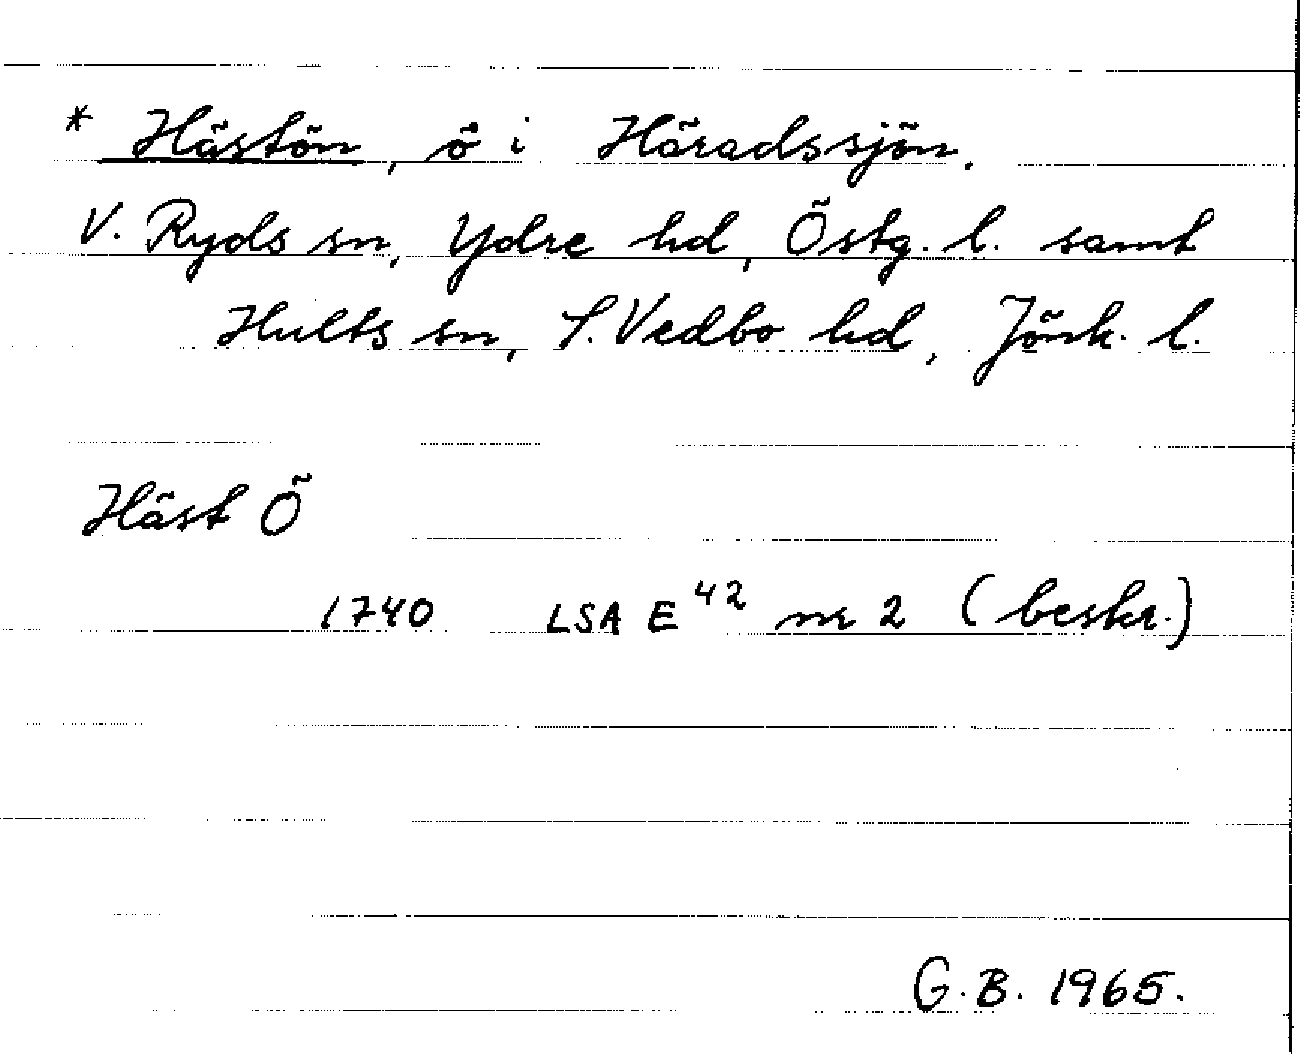 * Hästön, ö i Häradssjön.
V. Ryds sn, Ydre hd, Östg. l. samt
Hults sn, S. Vedbo hd, Jönk. l.
Häst Ö
1740 LSA E⁴² nr 2 (beskr.)
G.B. 1965.